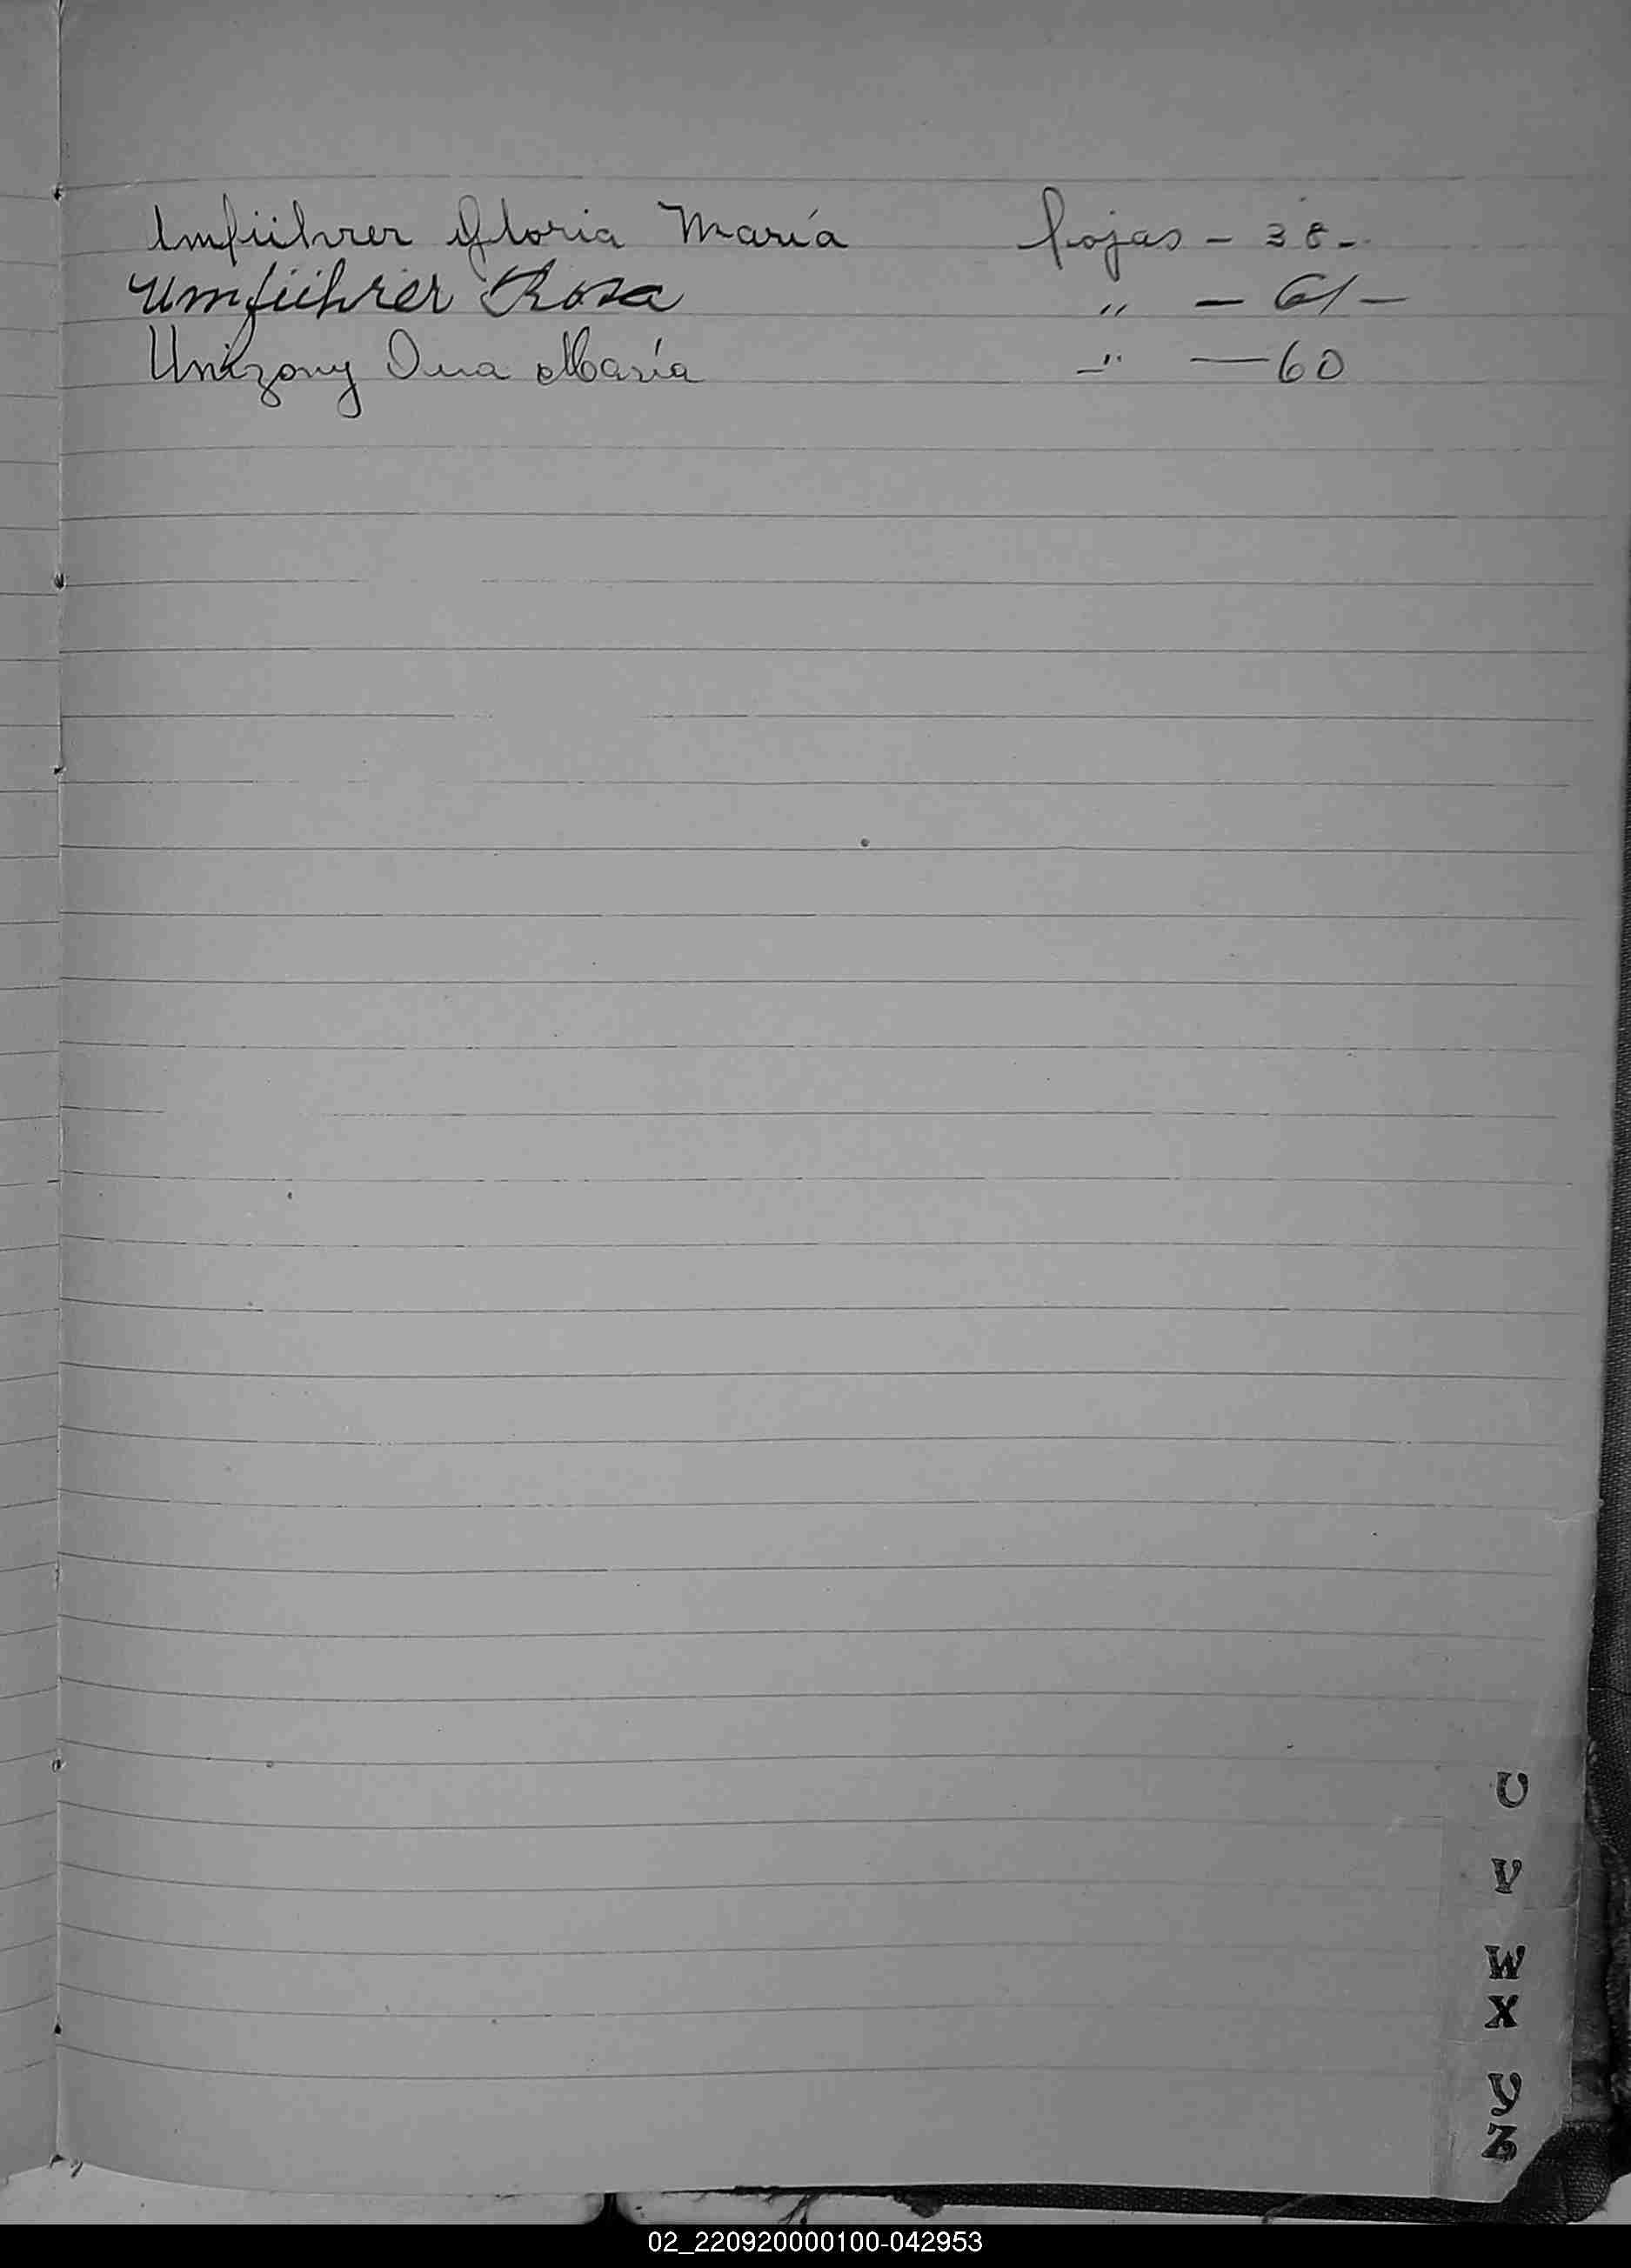 Umführer Gloria María fojas - 38 -
Umführer Rosa " - 61 -
María -"- 60
U
V
W
X
Y
Z
02_220920000100-042953